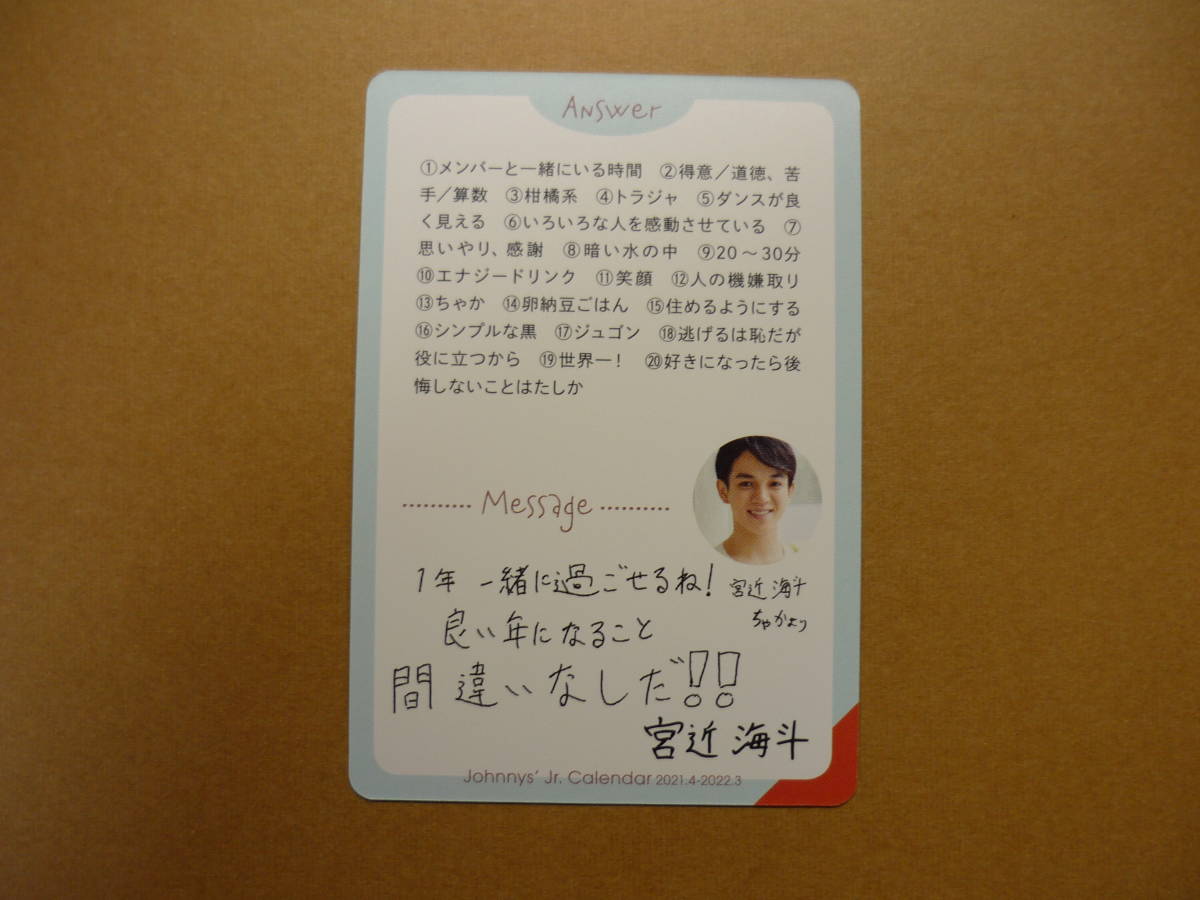 Answer
①メンバーと一緒にいる時間　②得意／道徳、苦
手／算数　③柑橘系　④トラジャ　⑤ダンスが良
く見える　⑥いろいろな人を感動させている　⑦
思いやり、感謝　⑧暗い水の中　⑨20～30分
⑩エナジードリンク　⑪笑顔　⑫人の機嫌取り
⑬ちゃか　⑭卵納豆ごはん　⑮住めるようにする
⑯シンプルな黒　⑰ジュゴン　⑱逃げるは恥だが
役に立つから　⑲世界一！　⑳好きになったら後
悔しないことはたしか
Message
1年 一緒に過ごせるね!
良い年になること
間違いなしだ!!
宮近 海斗
宮近 海斗
ちゃかより
Johnnys' Jr. Calendar 2021.4-2022.3